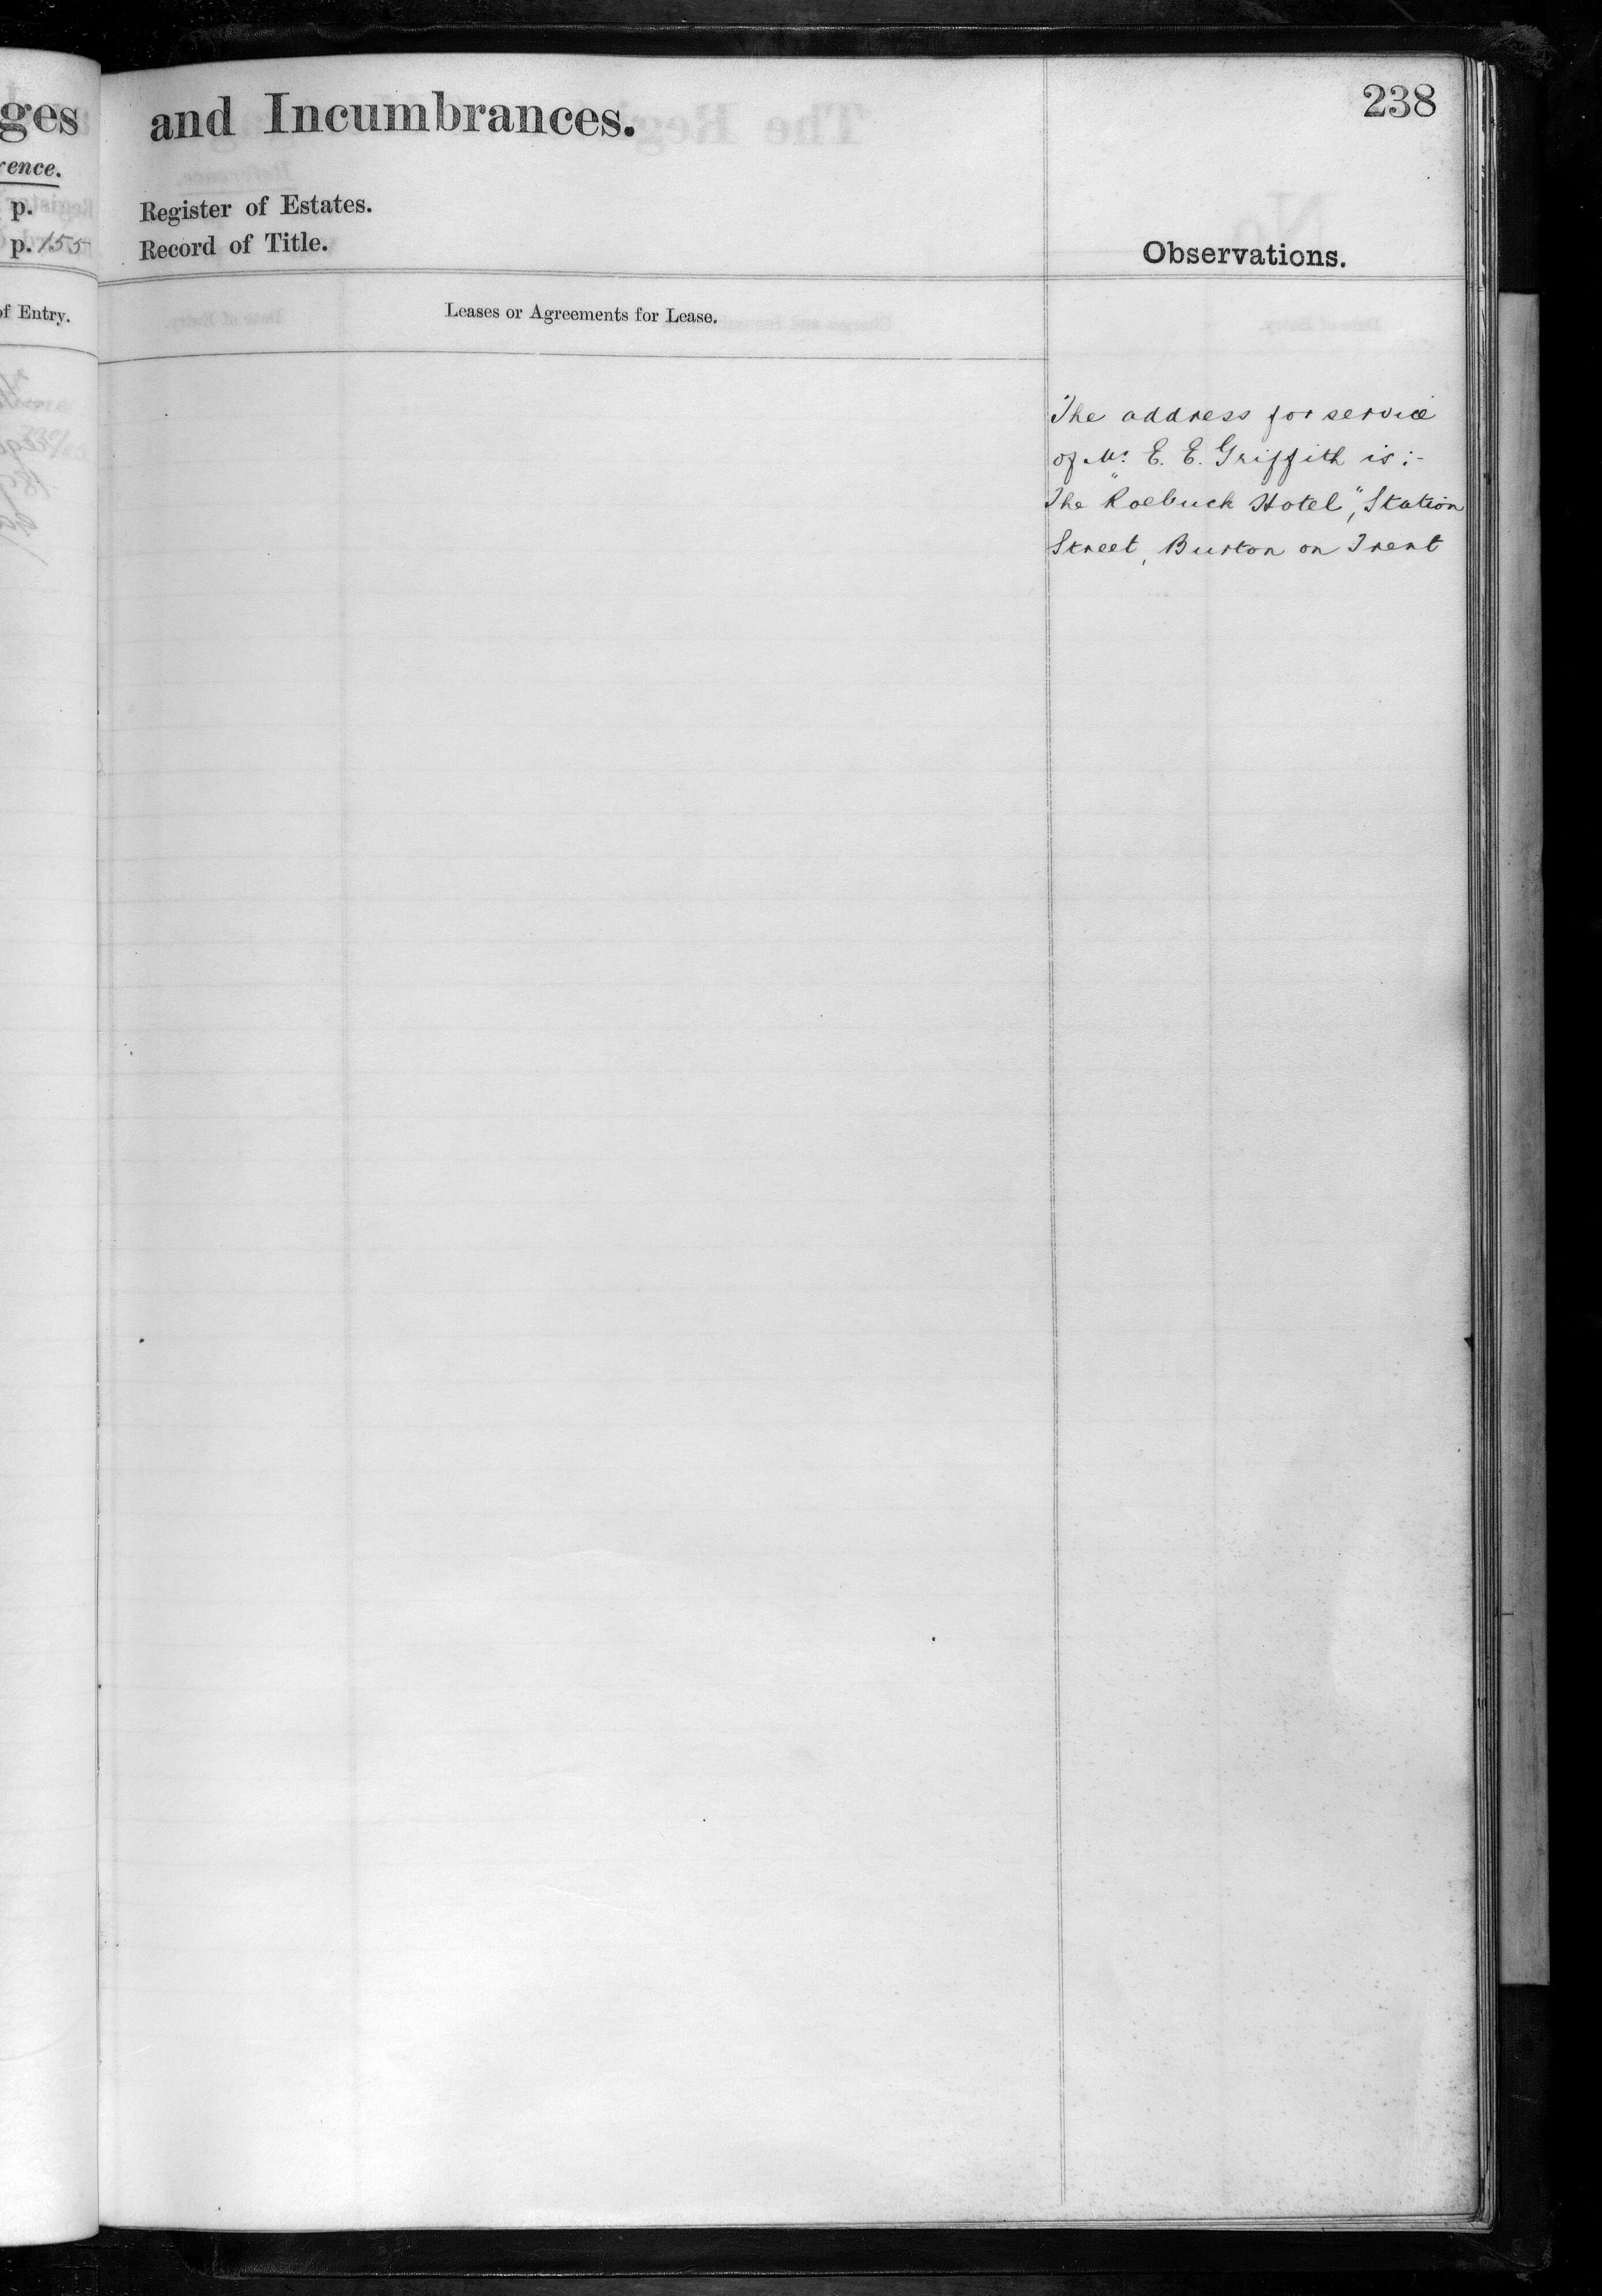 ges
and Incumbrances.
238
rence.
p.
Register of Estates.
p. 155
Record of Title.
Observations.
of Entry.
Leases or Agreements for Lease.
The address for service
of Mr. E. E. Griffith is :-
The "Roebuck Hotel", Station
Street, Burton on Trent